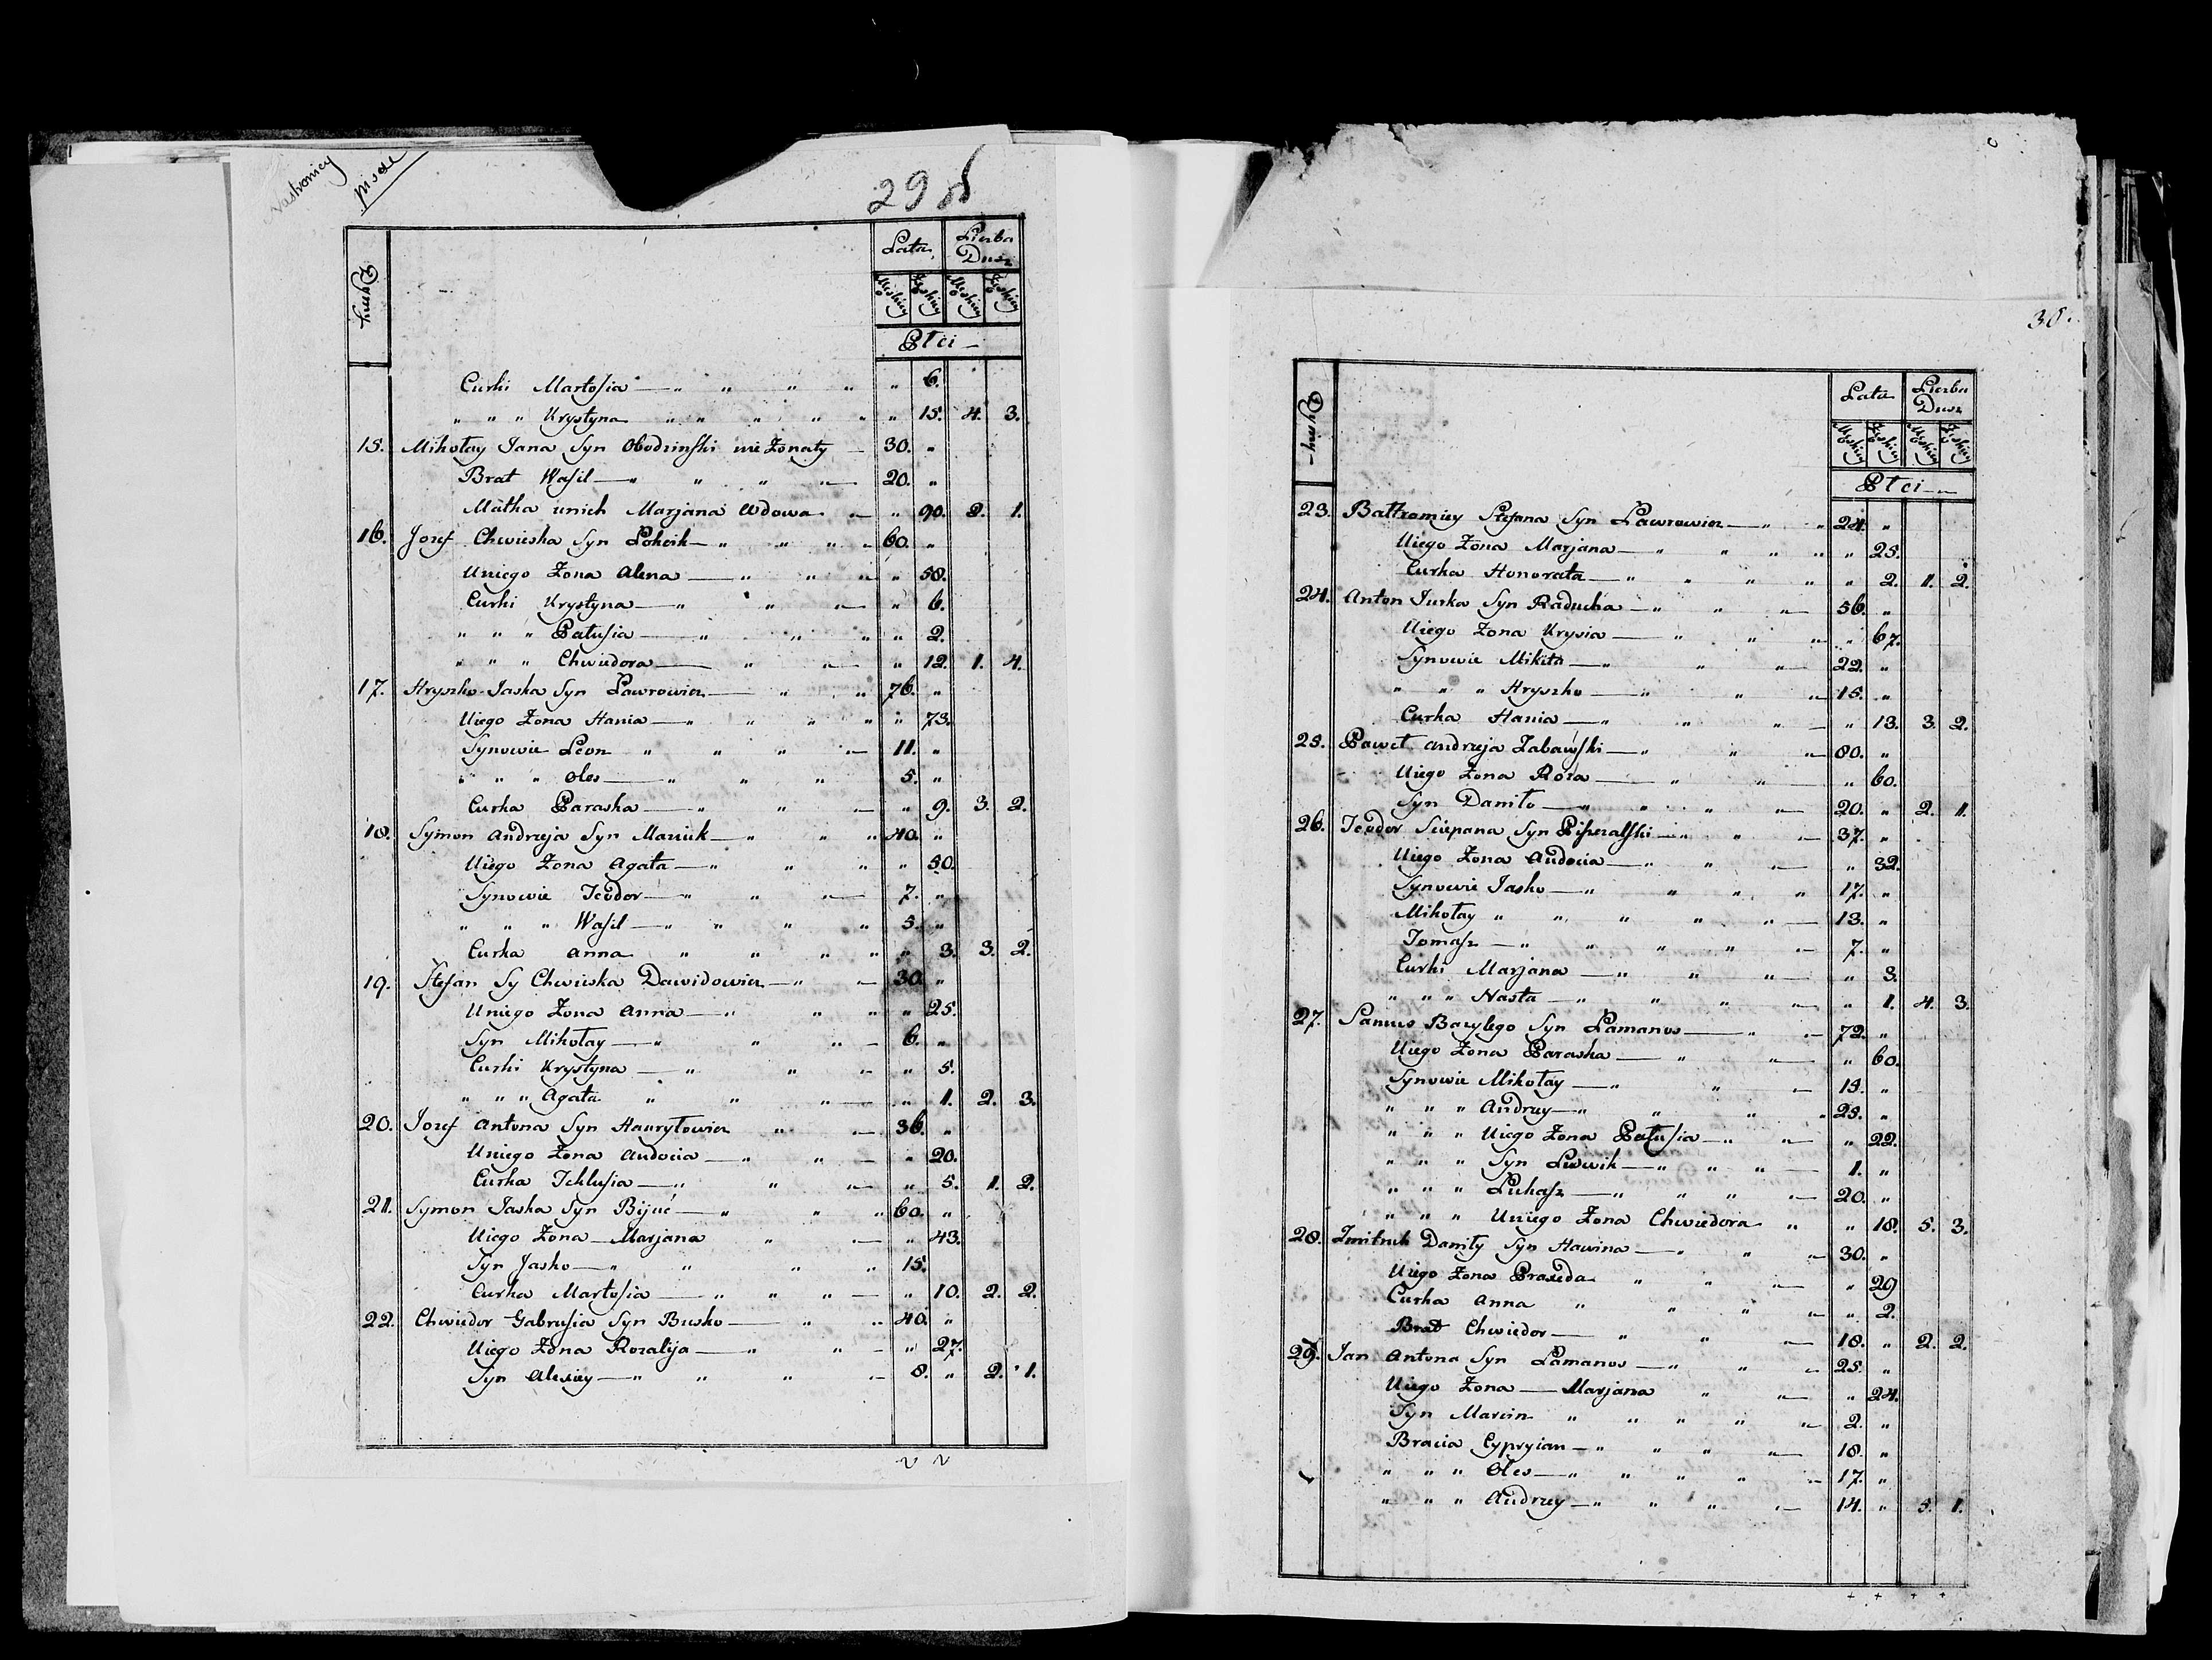 Nastronicy
29
Dymy
Lata
Liczba Dusz
Męskiey Żeńskiey Męskiey Żeńskiey
Płci
Curki Martosia " " " " " 6.
" " " Krystyna " " " " " " 15. 4. 3.
15. Mikołay Jana Syn Obodzinski nie Żonaty 30. "
Brat Wasil " " " " 20. "
Matka unich Marjana Wdowa " " 90. 2. 1.
16. Jozef Chwieska Syn Lokcik " " " " 60. "
Uniego Żona Alena " " " " 58.
Curki Krystyna " " " " 6.
" " " Patusia " " " " 2.
" " " Chwiedora " " " 12. 1. 4.
17. Hryszko Jaska Syn Ławrowicz " " 76. "
Uiego Żona Hania " " " " " 73.
Synowie Leon " " " " 11. "
" " " Oles " " " 5. "
Curka Paraska " " " " 9. 3. 2.
18. Symon Andrzeja Syn Maciuk " " " 40. "
Uiego Żona Agata " " " " 50.
Synowie Teodor " " " 7. "
" " " Wasil " " " " 5. "
Curka Anna " " " " " 3. 3. 2.
19. Stefan Sy Chwieska Dawidowicz " 30. "
Uniego Żona Anna " " " " 25.
Syn Mikołay " " " 6. "
Curki Krystyna " " " " 5.
" " " Agata " " " " 1. 2. 3.
20. Jozef Antona Syn Hawryłowicz " 36. "
Uniego Żona Audocia " " " 20.
Curka Teklusia " " " " 5. 1. 2.
21. Symon Jaska Syn Bijuć " " " 60. "
Uiego Żona Marjana " " " 43.
Syn Jasko " " " " 15.
Curka Martosia " " " " 10. 2. 2.
22. Chwiedor Gabrusia Syn Busko " " 40. "
Uiego Żona Rozalija " " " 27.
Syn Alexiey " " " " 8. " 2. 1.
30
Dymy
Lata
Liczba Dusz
Męskiey Żeńskiey Męskiey Żeńskiey
Płci
23. Bałtromiey Stefana Syn Ławrowicz " " 24. "
Uiego Żona Marjana " " " " " 25.
Curka Honorata " " " " " 2. 1. 2.
24. Anton Jurka Syn Raducha " " " 56. "
Uiego Żona Krysia " " " " 67.
Synowie Mikita " " " 22. "
" " " Hryszko " " " 15. "
Curka Hania " " " " 13. 3. 2.
25. Paweł Andrzeja Zabawski " " " 80. "
Uiego Żona Roza " " " 60.
Syn Daniło " " " " 20. " 2. 1.
26. Teodor Sciepana Syn Piszczalski " " " 37. "
Uiego Żona Audocia " " " " 32.
Synowie Jasko " " " " 17. "
Mikołay " " " " " 13. "
Tomasz " " " " " 7. "
Curki Marjana " " " " 3.
" " " Nasta " " " " " 1. 4. 3.
27. Samus Bazylego Syn Łamanos " " 72. "
Uiego Żona Paraska " " " 60.
Synowie Mikołay " " " 15. "
" " " Andrzey " " " " 25. "
" " " Uiego Żona Patusia " " " 22.
" " " Syn Ludwik " " " 1. "
" " " Łukasz " " " " 20. "
" " " Uniego Żona Chwiedora " " 18. 5. 3.
28. Zmitruk Daniły Syn Hawina " " " 30. "
Uiego Żona Praxeda " " " " 29
Curka Anna " " " " " 2.
Brat Chwiedor " " " 18. " 2. 2.
29. Jan Antona Syn Łamanos " " " 25. "
Uiego Żona Marjana " " " 24.
Syn Marcin " " " " " 2. "
Bracia Cypryian " " " " 18. "
" " " Oles " " " " " 17. "
" " " Andrzey " " " " 14. " 5. 1.